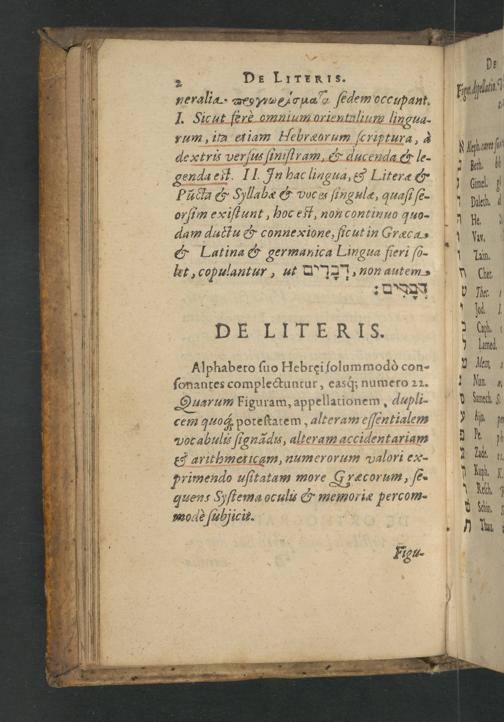 2 DE LITERIS.
neralia προγνωρίσματα sedem occupant.
I. Sicut ferè omnium orientalium lingua-
rum, ita etiam Hebræorum scriptura, à
dextris versus sinistram, & ducenda & le-
genda est. II. In hac lingua, & Literæ &
Pūcta & Syllabæ & voces singulæ, quasi se-
orsim existunt, hoc est, non continuo quo-
dam ductu & connexione, sicut in Græca
& Latina & germanica Lingua fieri so-
let, copulantur, ut דְּבָרִים, non autem
דְּבָרִים:
DE LITERIS.
Alphabeto suo Hebręi solummodò con-
sonantes complectuntur, easq; numero 22.
Quarum Figuram, appellationem, dupli-
cem quoq; potestatem, alteram essentialem
vocabulis signādis, alteram accidentariam
& arithmeticam, numerorum valori ex-
primendo usitatam more Græcorum, se-
quens Systema oculis & memoriæ percom-
modè subjicit.
Figu-
DE
Figur. Appellatio.
א Aleph.
Beth.
Gimel.
Daleth.
He.
Vav.
Zain.
Chet.
Thet.
Jod.
Caph.
Lamed.
Mem,
Nun.
Samech.
Pe.
Zade.
Kuph.
Resch.
Schin.
Thau.